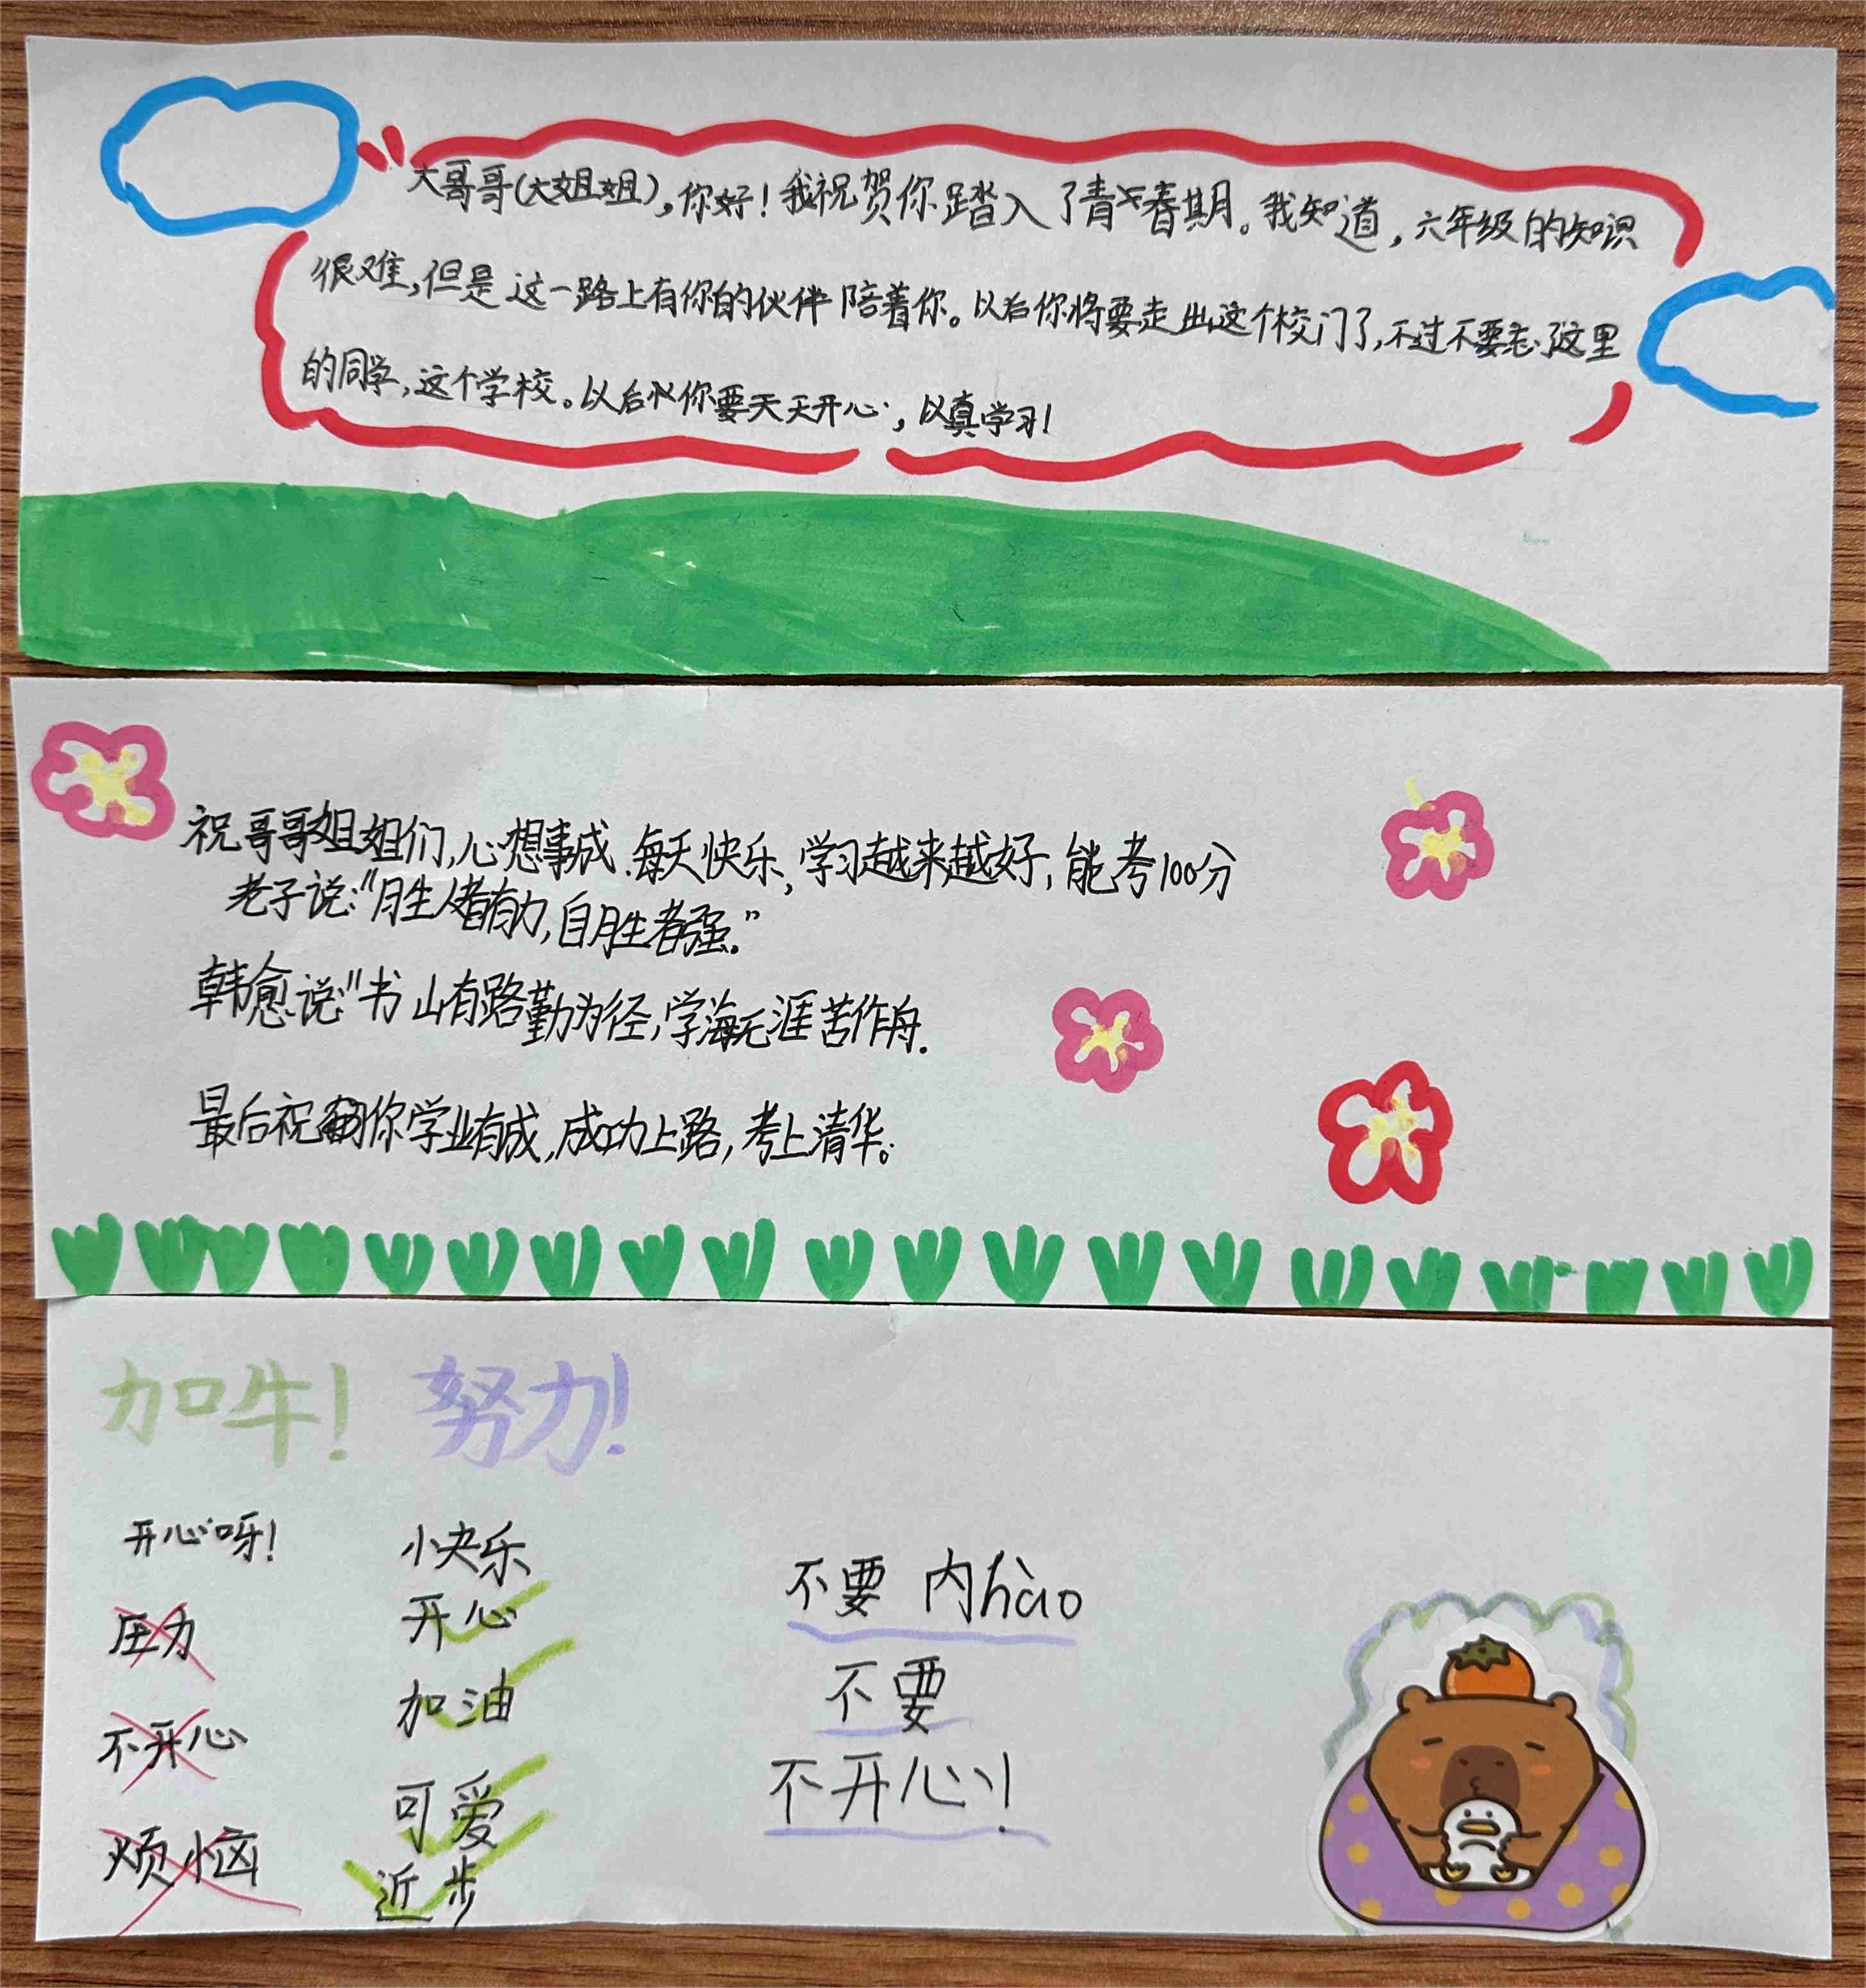 大哥哥(大姐姐),你好!我祝贺你踏入了青春期。我知道,六年级的知识
很难,但是这一路上有你的伙伴陪着你。以后你将要走出这个校门了,不过不要忘了这里
的同学,这个学校。以后你要天天开心,以真学习!
祝哥哥姐姐们,心想事成.每天快乐,学习越来越好,能考100分
老子说:"胜人者有力,自胜者强。"
韩愈说:"书山有路勤为径,学海无涯苦作舟.
最后祝你学业有成,成功上路,考上清华。
加牛! 努力!
开心呀!
压力
不开心
烦恼
小快乐
开心
加油
可爱
近步
不要 内hào
不要
不开心!